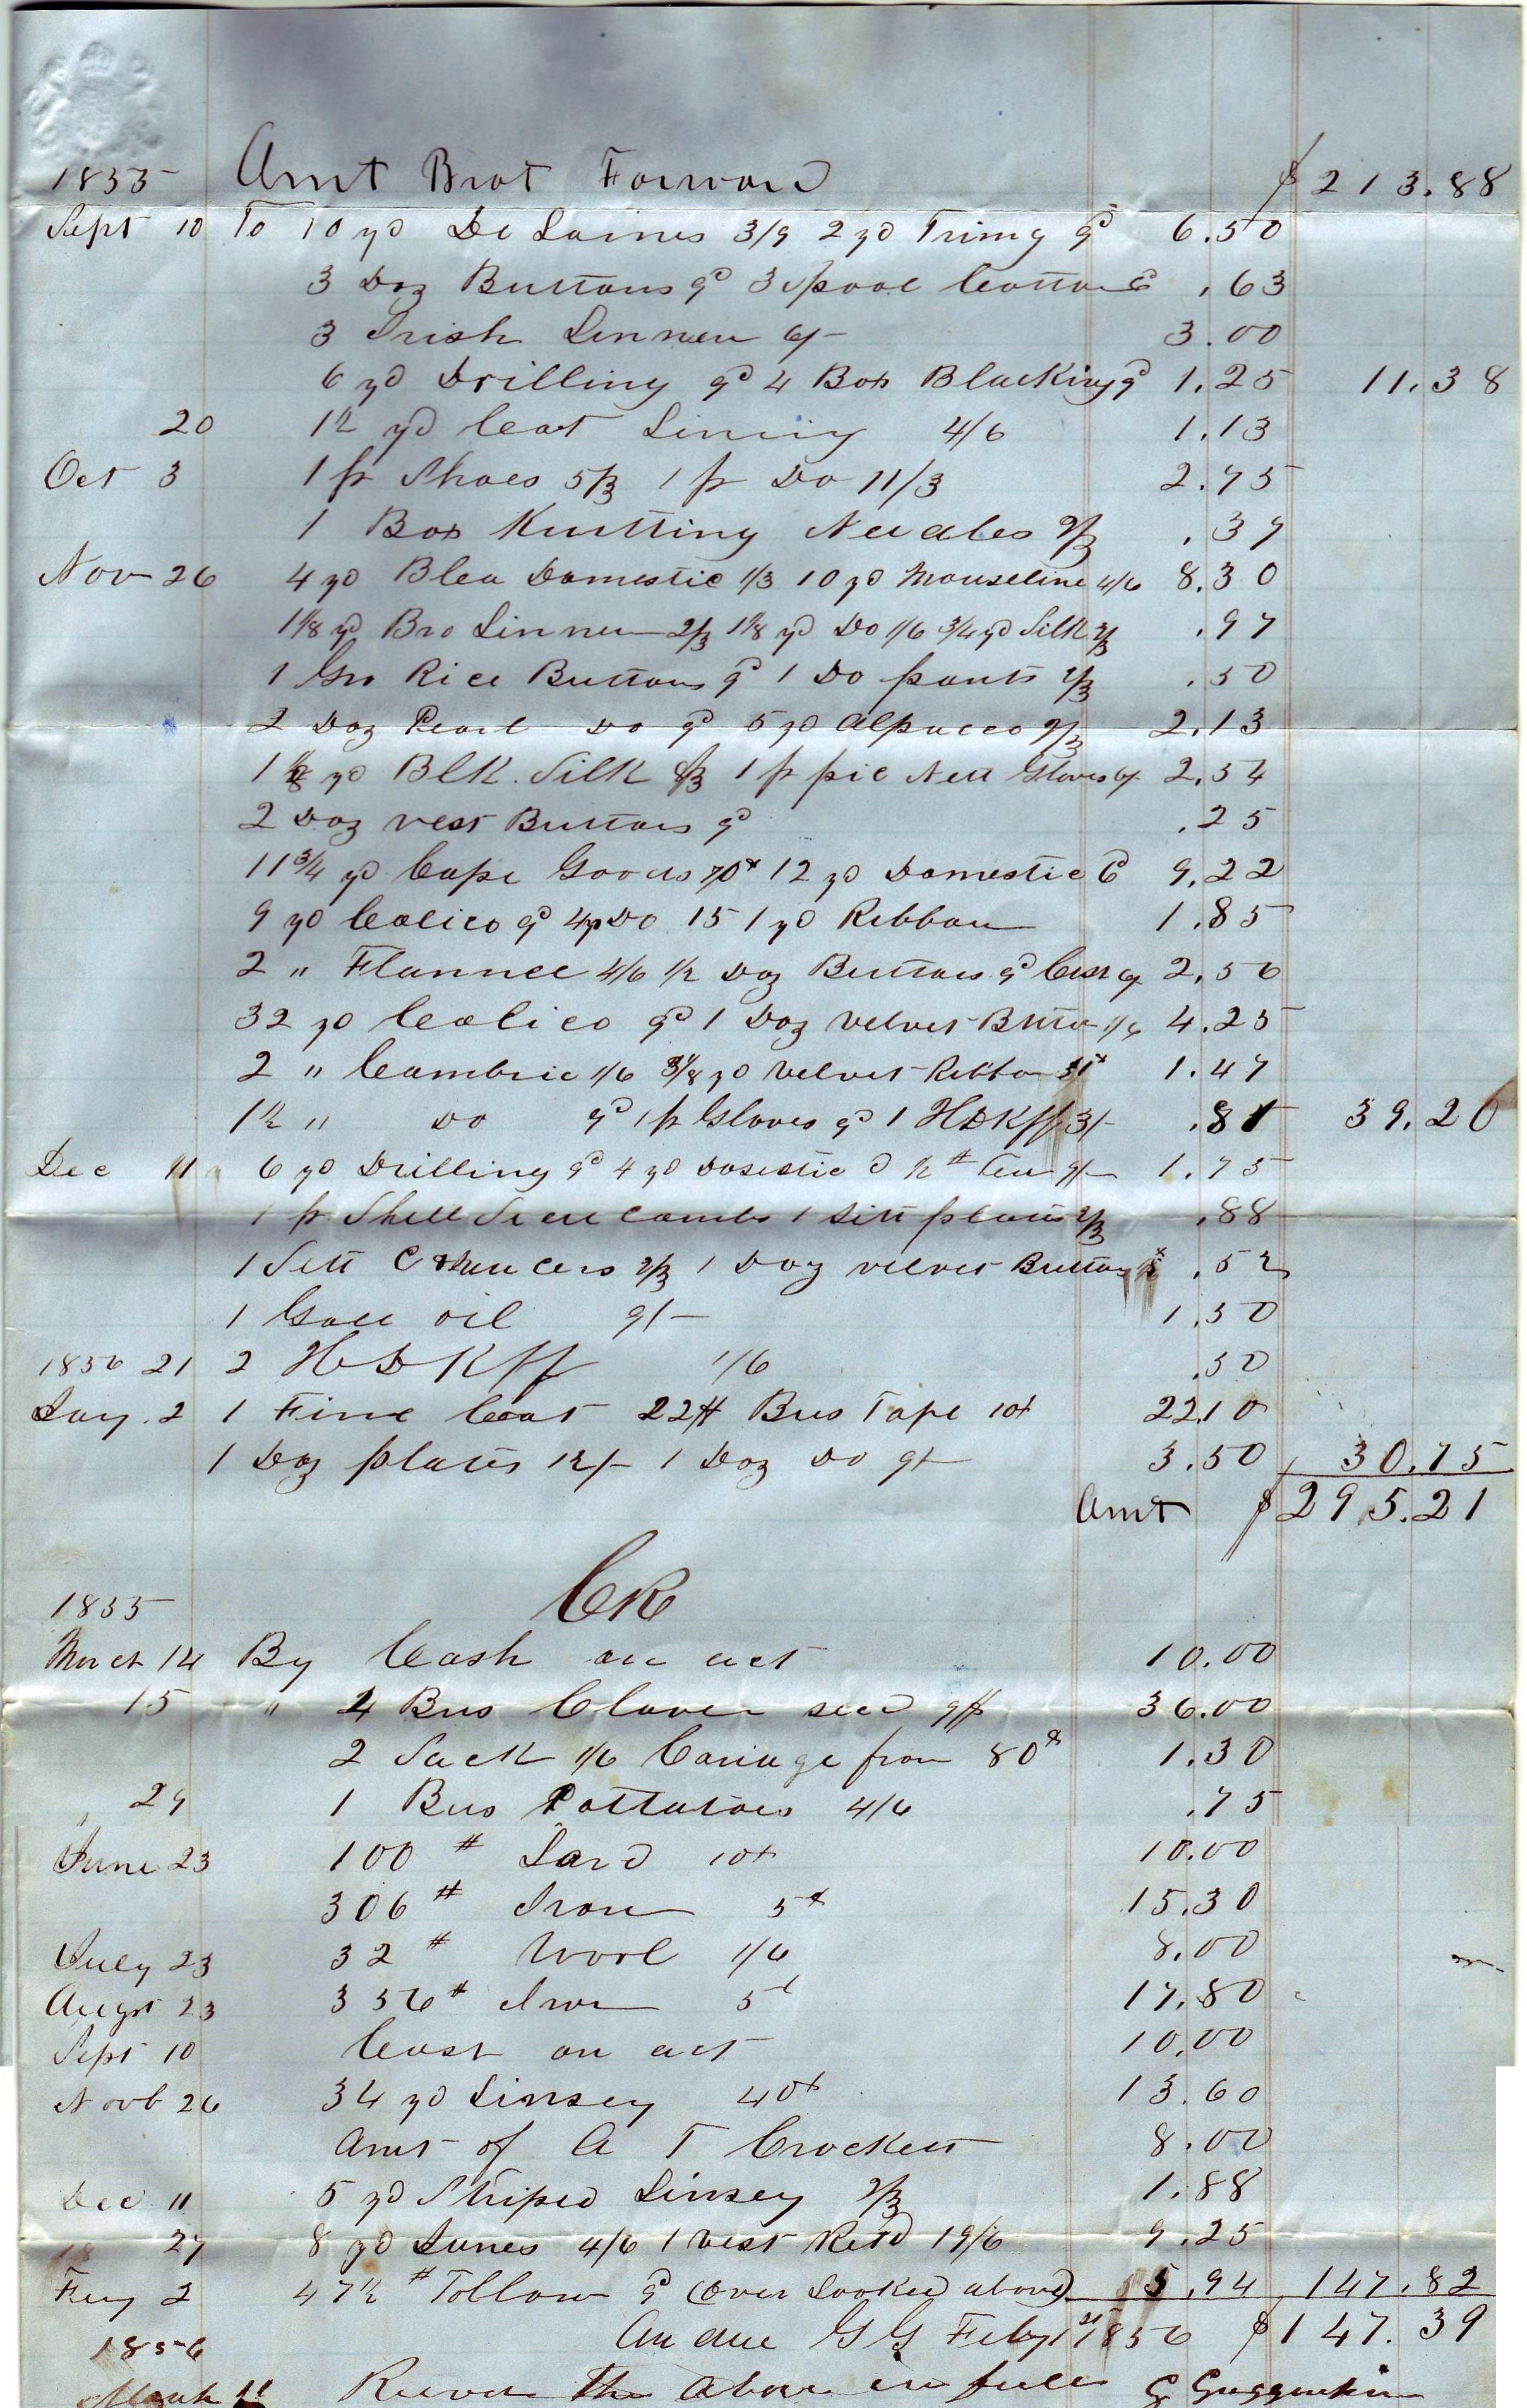 1855 Amt Brot Forward $213.88
Sept 10 To 10 yd De Laines 3/9 2 yd Trimg 9d 6.50
3 Doz Buttons 9d 3 spool Cotton 6d .63
3 Irish Linnen 6/- 3.00
6 yd Drilling 9d 4 Box Blacking 9d 1.25 11.38
20 1½ yd Coat Lining 4/6 1.13
Oct 3 1 pr Shoes 5/3 1 pr Do 11/3 2.75
1 Box Knitting Needles 2/3 .37
Nov 26 4 yd Blea Domestic 1/3 10 yd Mouseline 4/6 8.30
1⅛ yd Bro Linnen 2/3 1⅛ yd Do 1/6 ¾ yd Silk .97
1 Gro Rice Buttons 9d 1 Do pants 2/3 .50
2 Doz Pearl Do 9d 5 yd Alpacco 2/3 2.13
yd Blk. Silk 1 pr pic Nett Gloves 6/- 2.54
2 Doz vest Buttons 9d .25
11¾ yd Cape Goods 70x 12 yd Domestic 6d 9.22
9 yd Calico 9d 4 yd Do 15 1 yd Ribbon 1.85
2 " Flannel 4/6 ½ Doz Buttons 9d 2.56
32 yd Calico 9d 1 Doz velvet Button 1/6 4.25
2 " Cambric 1/6 yd velvet Ribbon 1.47
1½ " Do 9d 1 pr Gloves 9d 1 HDKff 3/- .81 39.20
Dec 11 6 yd Drilling 9d 4 yd Dosestic ½ # Tea 9/- 1.75
1 pr Shell Side Combs 1 sett plates 2/3 .88
1 Sett 2/3 1 Doz velvet Buttons .52
1 Gall oil 9/- 1.50
1856 21 2 HDKff 1/6 .50
Jay. 2 1 Fine Coat 22# Bus Tape 10x 22.10
1 Doz plates 12/- 1 Doz Do 9/- 3.50 30.75
Amt $295.21
CR
1855
March 14 By Cash on act 10.00
15 " 4 Bus Clover seed 9$ 36.00
2 Sack 1/6 Cariage from 80x 1.30
29 1 Bus Pottatoes 4/6 .75
June 23 100 # Lard 10x 10.00
306 # Iron 5x 15.30
July 23 32 # Wool 1/6 8.00
Augst 23 356 # Iron 5x 17.80
Sept 10 Cash on act 10.00
Novb 26 34 yd Linsey 40x 13.60
Amt of A T Crockett 8.00
Dec 11 5 yd Striped Linsey 2/3 1.88
27 8 yd Janes 4/6 1 vest Retd 19/6 9.25
Fey 2 47½ # Tollow 9d (over Looked above) 5.94 147.82
1856 Am due G G Feby 1856 $147.39
March 11 Receved the above in full G Guggenheim